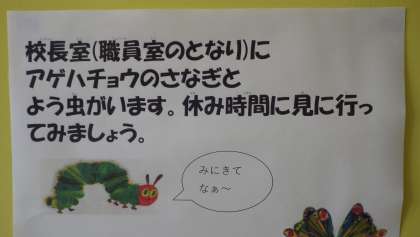 校長室(職員室のとなり)に
アゲハチョウのさなぎと
よう虫がいます。休み時間に見に行っ
てみましょう。
みにきて
なぁ～